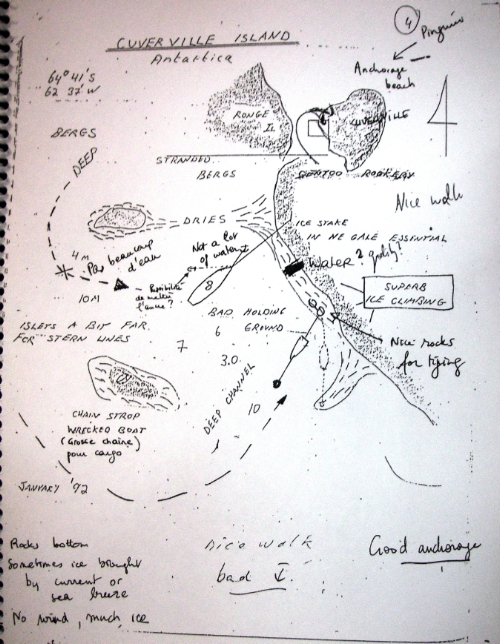 4
CUVERVILLE ISLAND
Antartica
Pinguins
64° 41's
62 37'W
Anchorage
beach
BERGS
DEEP
RONGE
I.
CUVERVILLE
STRANDED
BERGS
GENTOO ROOKERY
Nice walk
DRIES
ICE STAKE
IN NE GALE ESSENTIAL
Not a lot
of water
4m
Pas beaucoup
d'eau
Water? quality!
10M
Possibilité
de mettre
l'ancre?
8
SUPERB
ICE CLIMBING
BAD HOLDING
GROUND
6
ISLETS A BIT FAR
FOR STERN LINES
7
Nice rocks
for tying
3.0
DEEP CHANNEL
10
CHAIN STROP
WRECKED BOAT
(Grosse chaîne)
pour cargo
JANUARY '92
Rocks bottom
Sometimes ice brought
by current or
sea breeze
No wind, much ice
nice walk
bad
Good anchorage